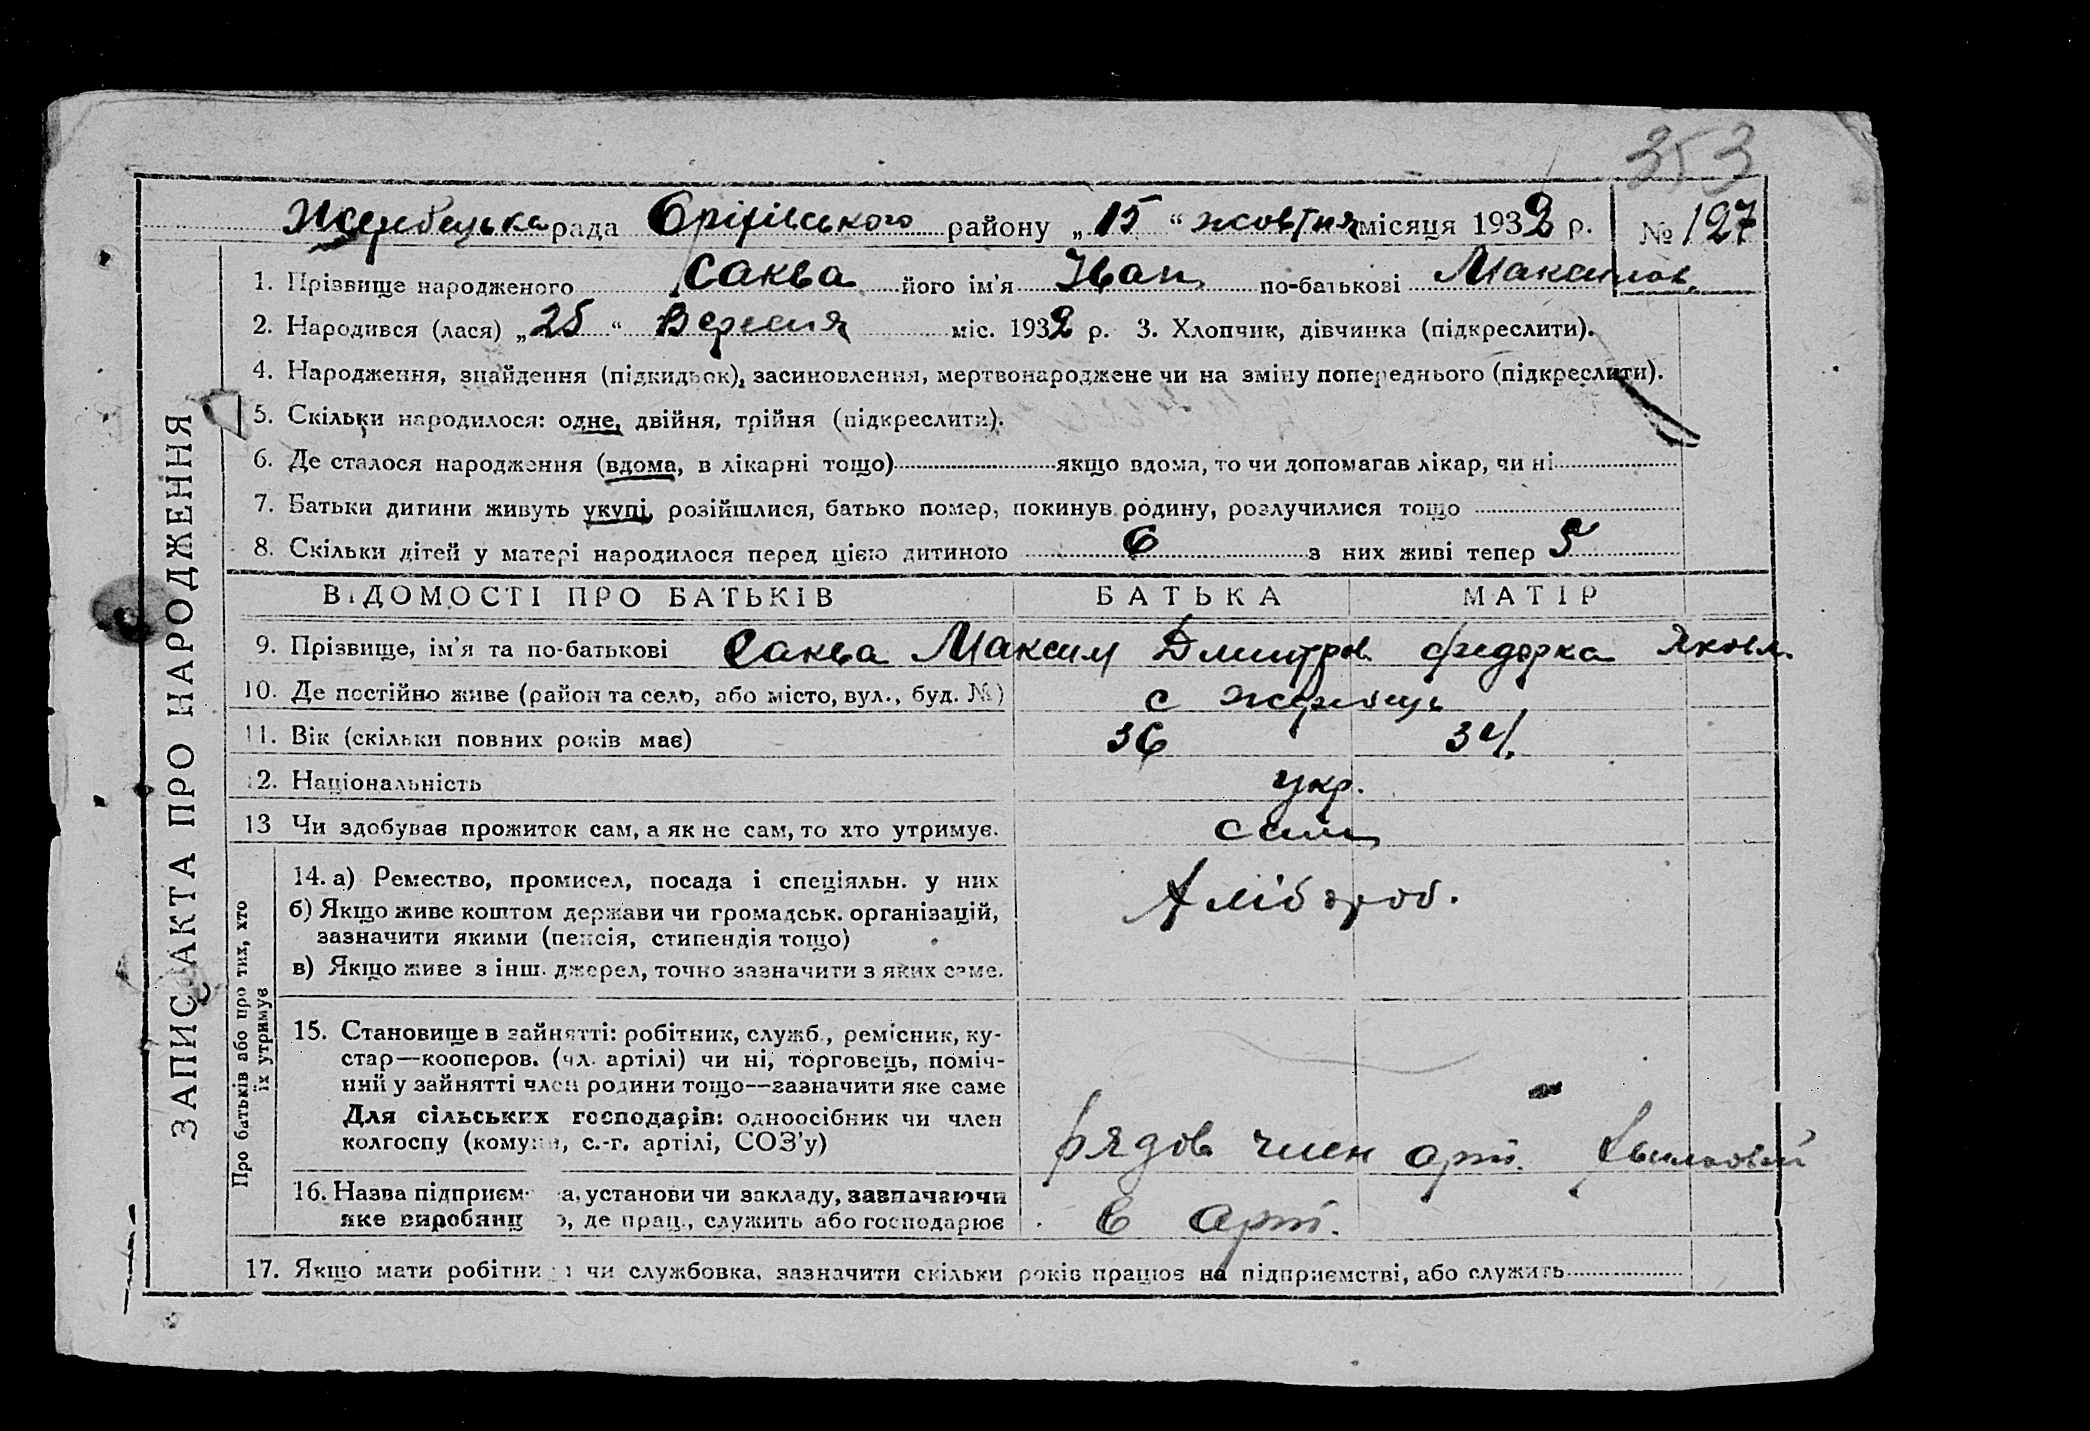 353
Жеребецька рада Оріхівського району „15“ жовтня місяця 1932 р. № 127
1. Прізвище народженого Саква його ім'я Іван по-батькові Максимов.
2. Народився (лася) „25“ Вересня міс. 1932 р. 3. Хлопчик, дівчинка (підкреслити).
4. Народження, знайдення (підкидьок), засиновлення, мертвонароджене чи на зміну попереднього (підкреслити).
5. Скільки народилося: одне, двійня, трійня (підкреслити).
6. Де сталося народження (вдома, в лікарні тощо) якщо вдома, то чи допомагав лікар, чи ні
7. Батьки дитини живуть укупі, розійшлися, батько помер, покинув родину, розлучилися тощо
8. Скільки дітей у матері народилося перед цією дитиною 6 з них живі тепер 5
ВІДОМОСТІ ПРО БАТЬКІВ БАТЬКА МАТІР
9. Прізвище, ім'я та по-батькові Саква Максим Дмитров. Федорка Яковл.
10. Де постійно живе (район та село, або місто, вул., буд. №) с Жеребець
11. Вік (скільки повних років має) 36 34.
12. Національність укр.
13 Чи здобуває прожиток сам, а як не сам, то хто утримує. сам
14. а) Ремество, промисел, посада і спеціяльн. у них хліборoб.
б) Якщо живе коштом держави чи громадськ. організацій,
зазначити якими (пенсія, стипендія тощо)
в) Якщо живе з інш. джерел, точно зазначити з яких саме.
15. Становище в зайнятті: робітник, служб., ремісник, ку-
стар—кооперов. (чл. артілі) чи ні, торговець, поміч-
ний у зайнятті член родини тощо—зазначити яке саме
Для сільських господарів: одноосібник чи член
колгоспу (комуни, с.-г. артілі, СОЗ'у) рядов член арт.
16. Назва підприєм а, установи чи закладу, зазначаючи
яке виробниц о, де прац., служить або господарює в арт.
17. Якщо мати робітни чи службовка, зазначити скільки років працює на підприємстві, або служить
ЗАПИС АКТА ПРО НАРОДЖЕННЯ
Про батьків або про тих, хто
їх утримує